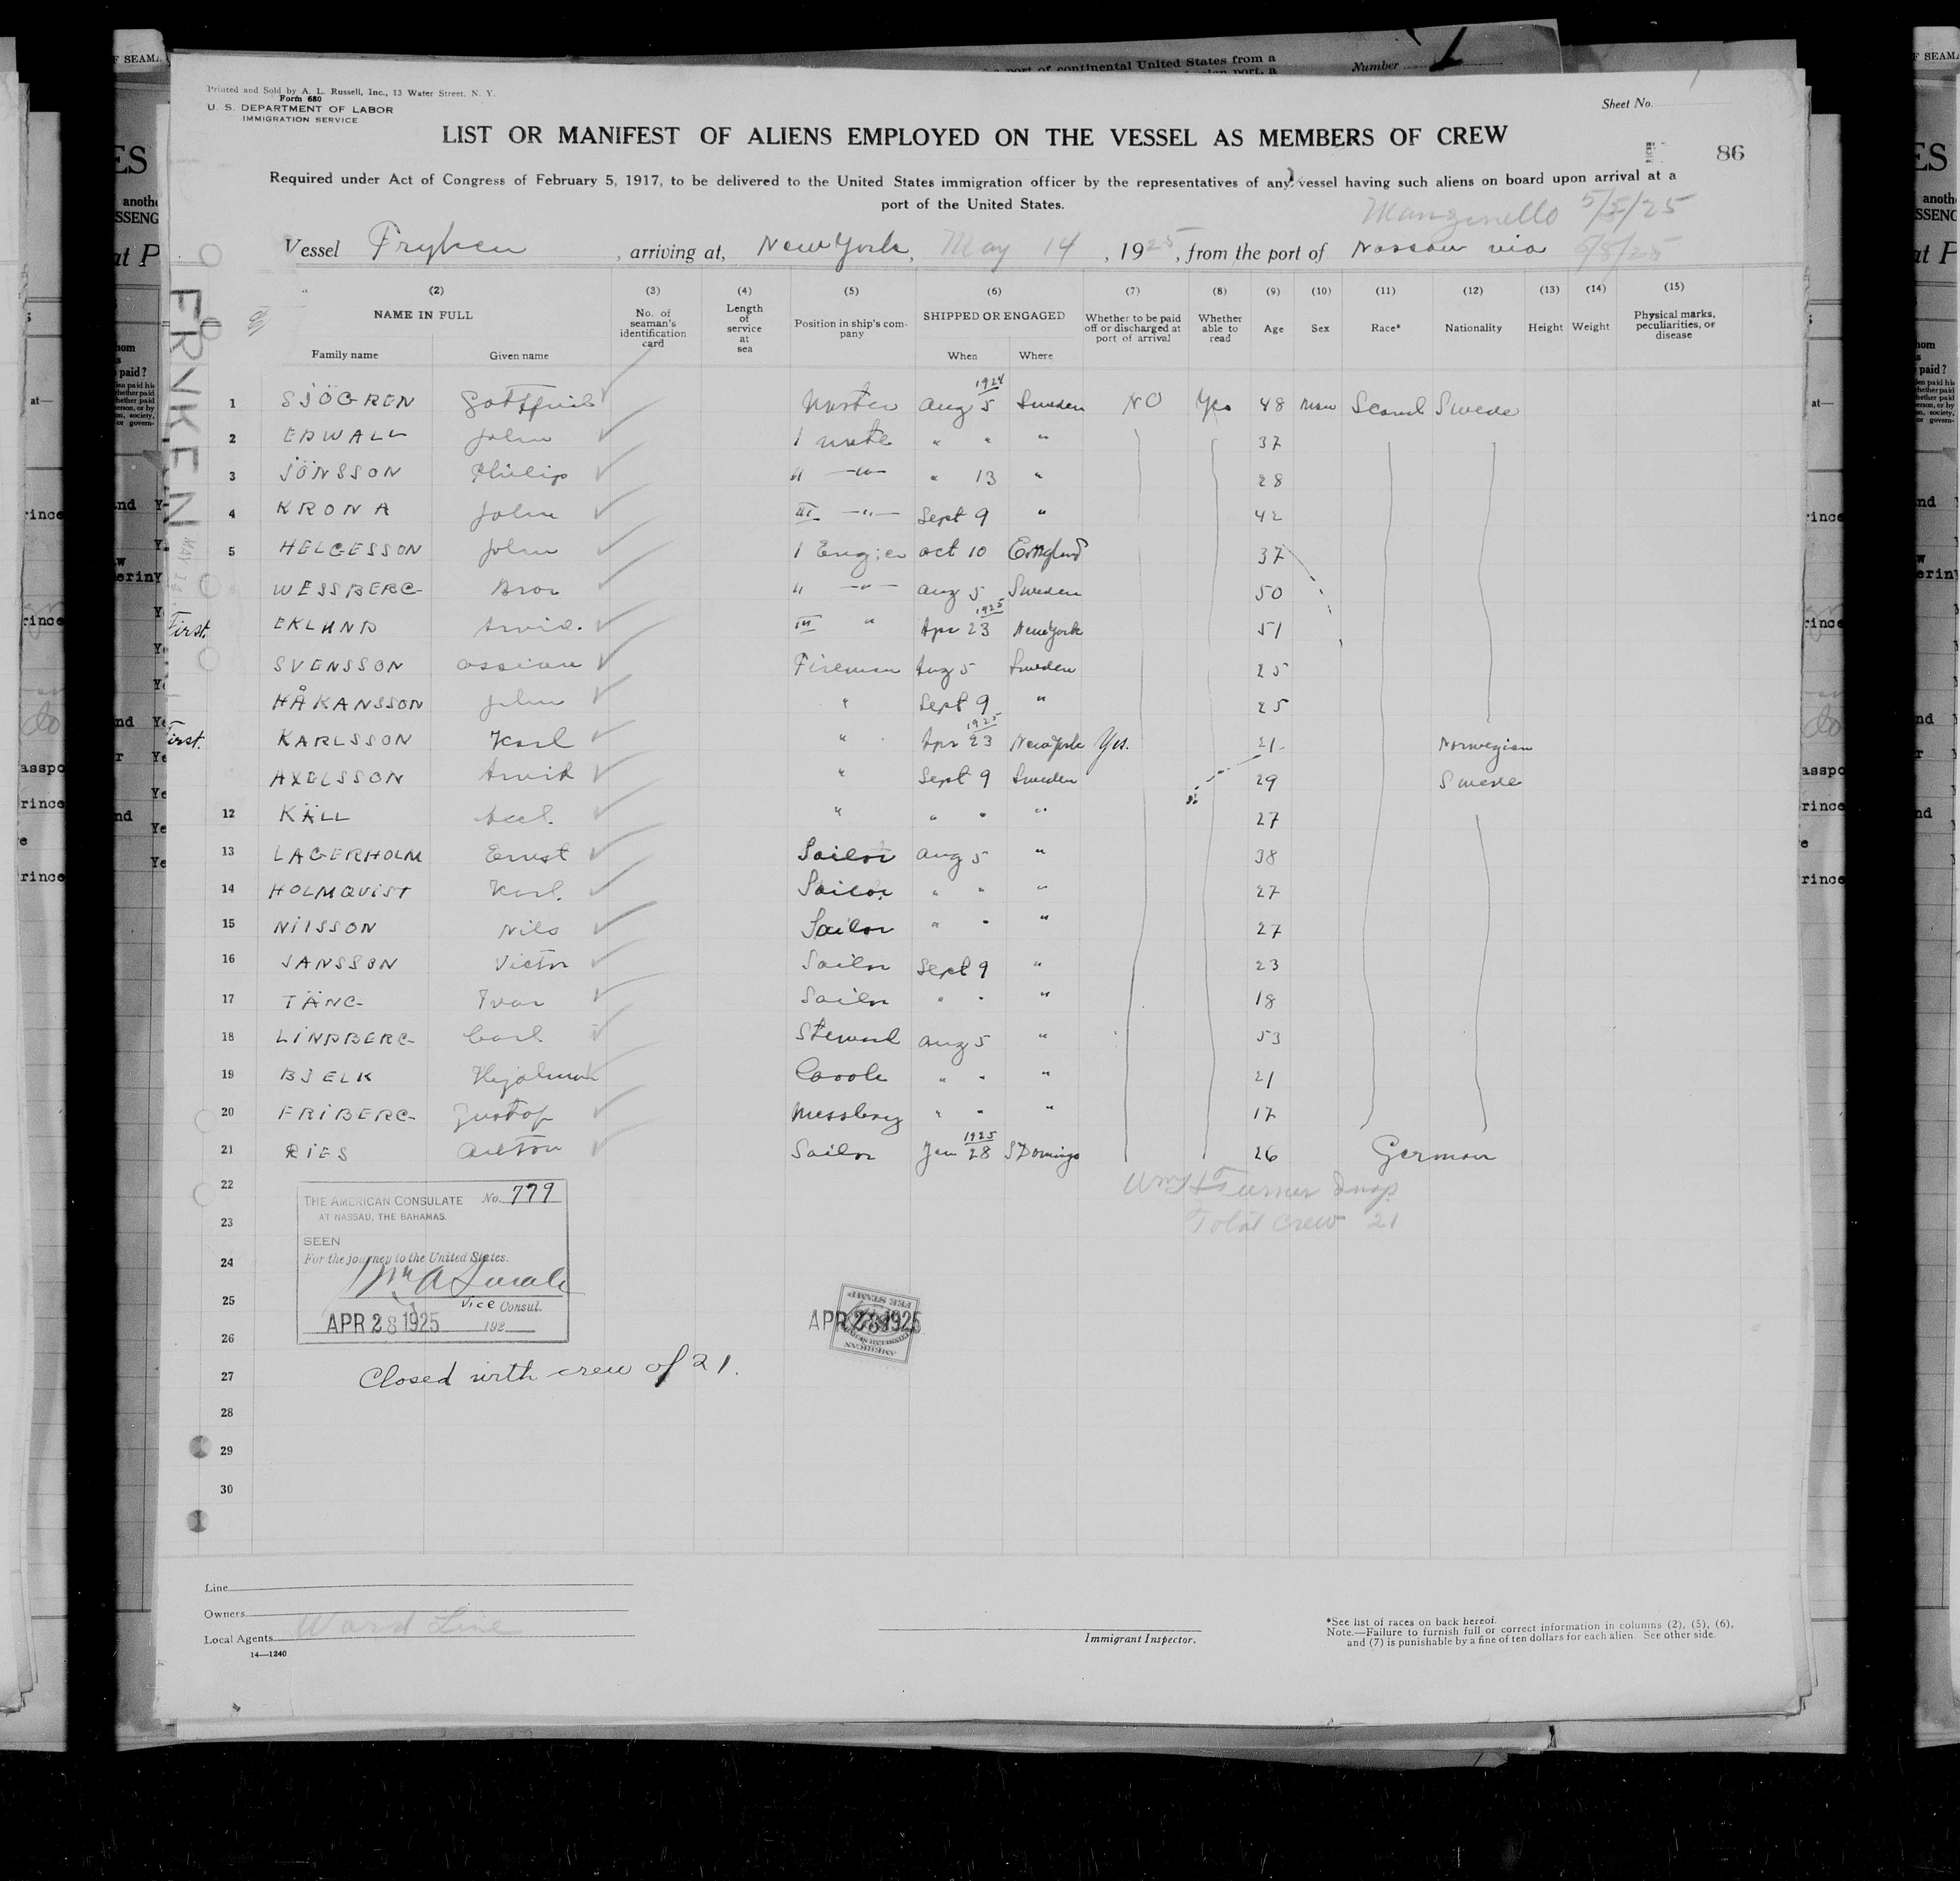 port of continental United States from a
Number 1
Printed and Sold by A. L. Russell, Inc., 13 Water Street, N. Y.
Form 680
U. S. DEPARTMENT OF LABOR
IMMIGRATION SERVICE
Sheet No.
LIST OR MANIFEST OF ALIENS EMPLOYED ON THE VESSEL AS MEMBERS OF CREW
86
Required under Act of Congress of February 5, 1917, to be delivered to the United States immigration officer by the representatives of any vessel having such aliens on board upon arrival at a
port of the United States.
Manzinello 5/5/25
Vessel Fryken, arriving at, New York, May 14, 1925, from the port of Nassau via 5/8/25
FRYKEN
(2) (3) (4) (5) (6) (7) (8) (9) (10) (11) (12) (13) (14) (15)
NAME IN FULL
Family name Given name
No. of seaman's identification card
Length of service at sea
Position in ship's company
SHIPPED OR ENGAGED
When Where
Whether to be paid off or discharged at port of arrival
Whether able to read
Age Sex Race* Nationality Height Weight
Physical marks, peculiarities, or disease
1 SJÖGREN Gottfrid Master 1924 Aug 5 Sweden NO Yes 48 Man Scand Swede
2 EDWALL John 1 mate " " " 37
3 JÖNSSON Philip " —"— " 13 " 28
4 KRONA John III —"— Sept 9 " 42
5 HELGESSON John 1 Engier Oct 10 England 37
WESSBERG Bror " —"— Aug 5 Sweden 50
First. EKLUND Arvid. III " 1925 Apr 23 New York 51
SVENSSON Ossian Fireman Aug 5 Sweden 25
HÅKANSSON John " Sept 9 " 25
First. KARLSSON Karl " 1925 Apr 23 New York Yes. 21 Norwegian
AXELSSON Arvid " Sept 9 Sweden 29 Swede
12 KÄLL Axel. " " " " 27
13 LAGERHOLM Ernst Sailor Aug 5 " 38
14 HOLMQVIST Karl. Sailor " " " 27
15 NILSSON Nils Sailor " " " 27
16 JANSSON Victor Sailor Sept 9 " 23
17 TÄNG Ivar Sailor " " " 18
18 LINDBERG Carl Steward Aug 5 " 53
19 BJELK Hjalmar Coock " " " 21
20 FRIBERG Gustof Messboy " " " 17
21 RIES Anton Sailor 1925 Jan 28 S Domingo 26 German
22
Wm H Turner Insp
23
Total Crew 21
24
25
26
THE AMERICAN CONSULATE No. 779
AT NASSAU, THE BAHAMAS.
SEEN
For the journey to the United States.
Vice Consul.
APR 28 1925 192
AMERICAN CONSULAR SERVICE
FEE STAMP
APR 28 1925
27 Closed with crew of 21.
28
29
30
Line
Owners
Local Agents Ward Line
14—1240
Immigrant Inspector.
*See list of races on back hereof.
Note.—Failure to furnish full or correct information in columns (2), (5), (6),
and (7) is punishable by a fine of ten dollars for each alien. See other side.